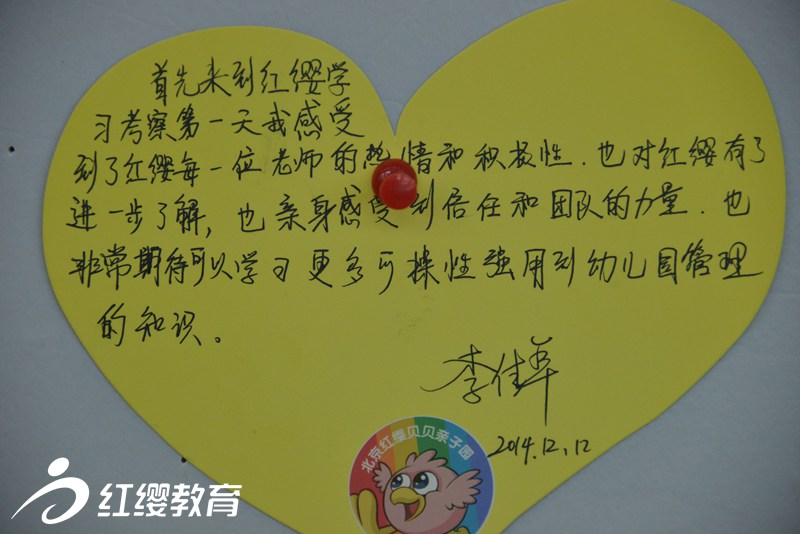 首先来到红缨学
习考察第一天我感受
到了红缨每一位老师的热情和积极性.也对红缨有了
进一步了解,也亲身感受到信任和团队的力量.也
非常期待可以学习更多可操性强用到幼儿园管理
的知识。
李佳
2014.12.12
北京红缨贝贝亲子园
红缨教育